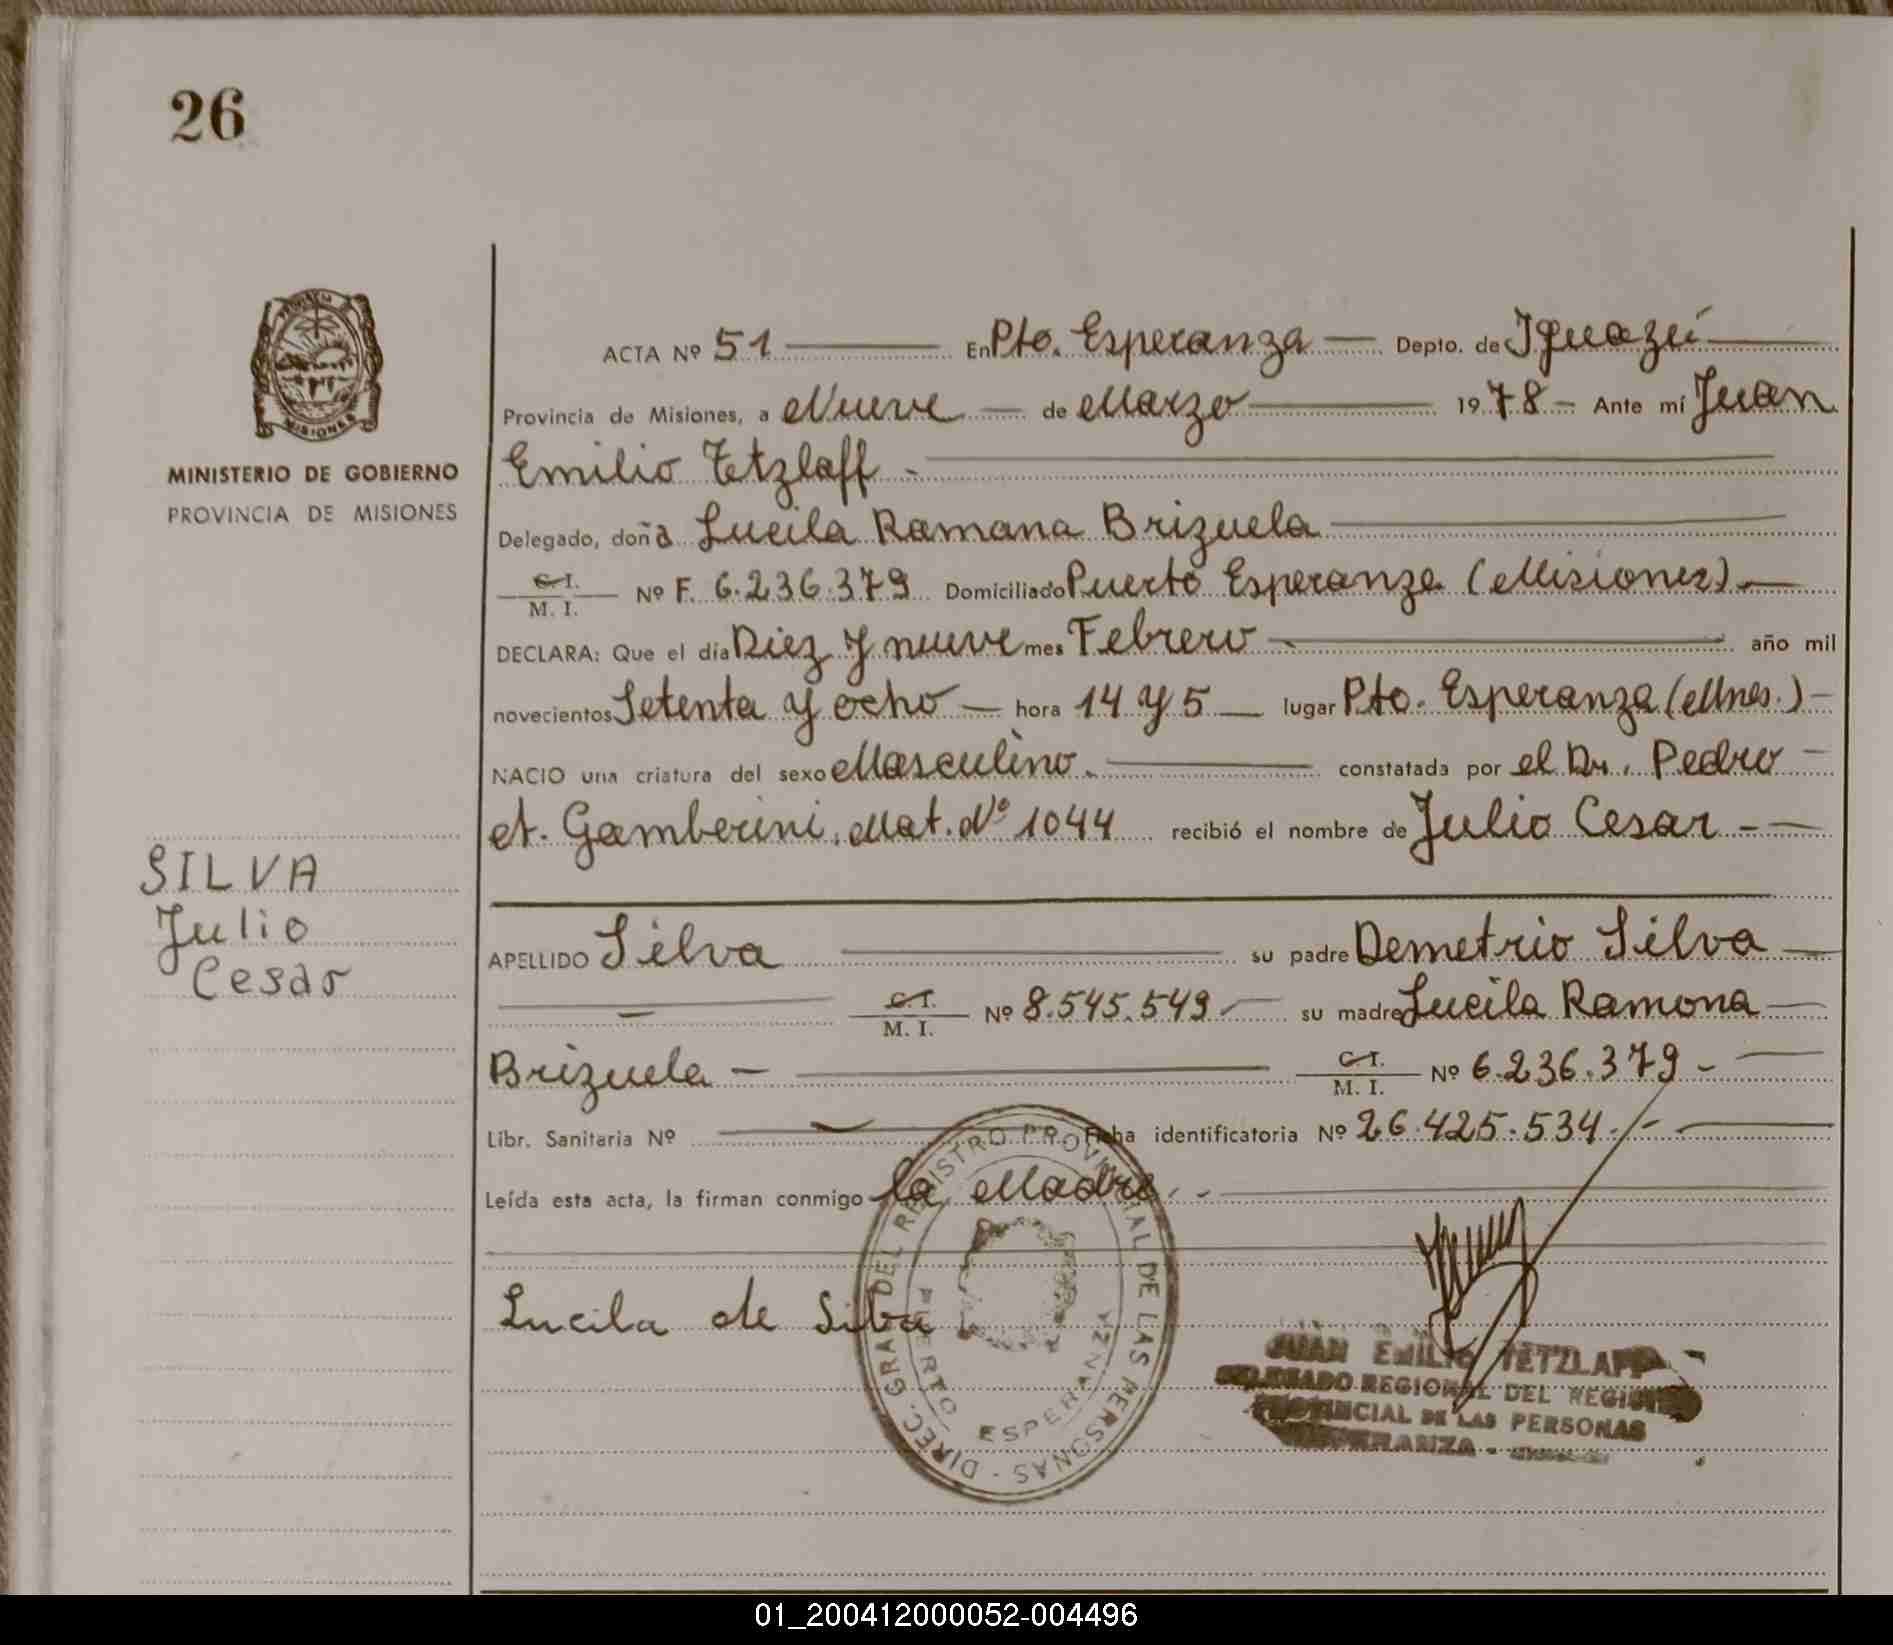 26
MINISTERIO DE GOBIERNO
PROVINCIA DE MISIONES
SILVA
Julio
Cesar
ACTA Nº 51 En Pto. Esperanza Depto. de Iguazú
Provincia de Misiones, a Nueve de Marzo 1978 Ante mí Juan
Emilio Tetzlaff
Delegado, doña Lucila Ramona Brizuela
C. I.
M. I. Nº F. 6.236.379 Domiciliado Puerto Esperanza (Misiones)
DECLARA: Que el día Diez y nueve mes Febrero año mil
novecientos Setenta y ocho hora 14 y 5 lugar Pto. Esperanza (Mnes.)
NACIO una criatura del sexo Masculino. constatada por el Dr. Pedro
A. Gamberini, Mat. Nº 1044 recibió el nombre de Julio Cesar
APELLIDO Silva su padre Demetrio Silva
C. I.
M. I. Nº 8.545.549 su madre Lucila Ramona
Brizuela C. I.
M. I. Nº 6.236.379
Libr. Sanitaria Nº Ficha identificatoria Nº 26.425.534
Leída esta acta, la firman conmigo la Madre
Lucila de Silva
DIREC. GRAL. DEL REGISTRO PROVINCIAL DE LAS PERSONAS
PUERTO ESPERANZA
JUAN EMILIO TETZLAFF
DELEGADO REGIONAL DEL REGISTRO
PROVINCIAL DE LAS PERSONAS
ESPERANZA -
01_200412000052-004496